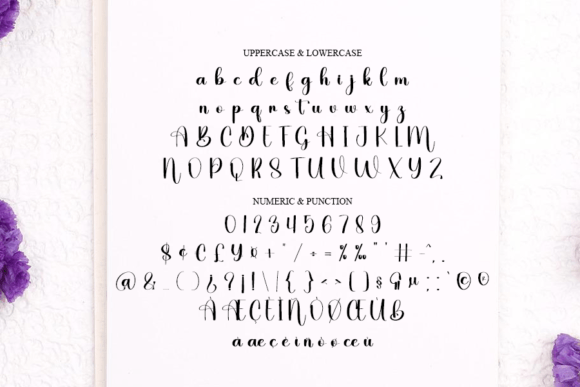 UPPERCASE & LOWERCASE
a b c d e f g h i j k l m
n o p q r s t u v w x y z
A B C D E F G H I J K L M
N O P Q R S T U V W X Y Z
NUMERIC & PUNCTION
0 1 2 3 4 5 6 7 8 9
$ ¢ C £ Y ¤ + ° / ÷ = % ‰ " ' # - ^ . .
@ & _ ( ) ¿ ? ¡ ! \ | { } < > [ ] § ¶ µ : ; ` © ®
À Æ Ç È Ì Ñ Ò Ø Œ Ù ß
à æ ç è ì ñ ò ø œ ù